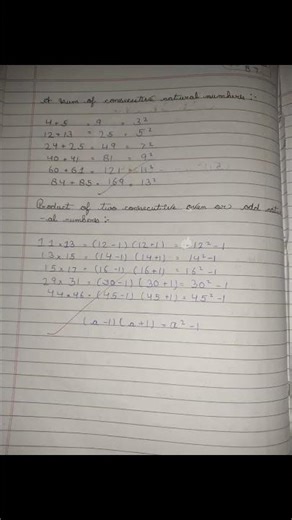 A sum of consecutive natural numbers :-
4 + 5 = 9 = 3²
12 + 13 = 25 = 5²
24 + 25 = 49 = 7²
40 + 41 = 81 = 9²
60 + 61 = 121 =
84 + 85 = 169 = 13²
Product of two consecutive even or odd nat
-al numbers :-
11 × 13 = (12-1) (12+1) = 12² - 1
13 × 15 = (14-1) (14+1) = 14² - 1
15 × 17 = (16-1) (16+1) = 16² - 1
29 × 31 = (30-1) (30+1) = 30² - 1
44 × 46 = (45-1) (45+1) = 45² - 1
(a-1) (a+1) = a² - 1